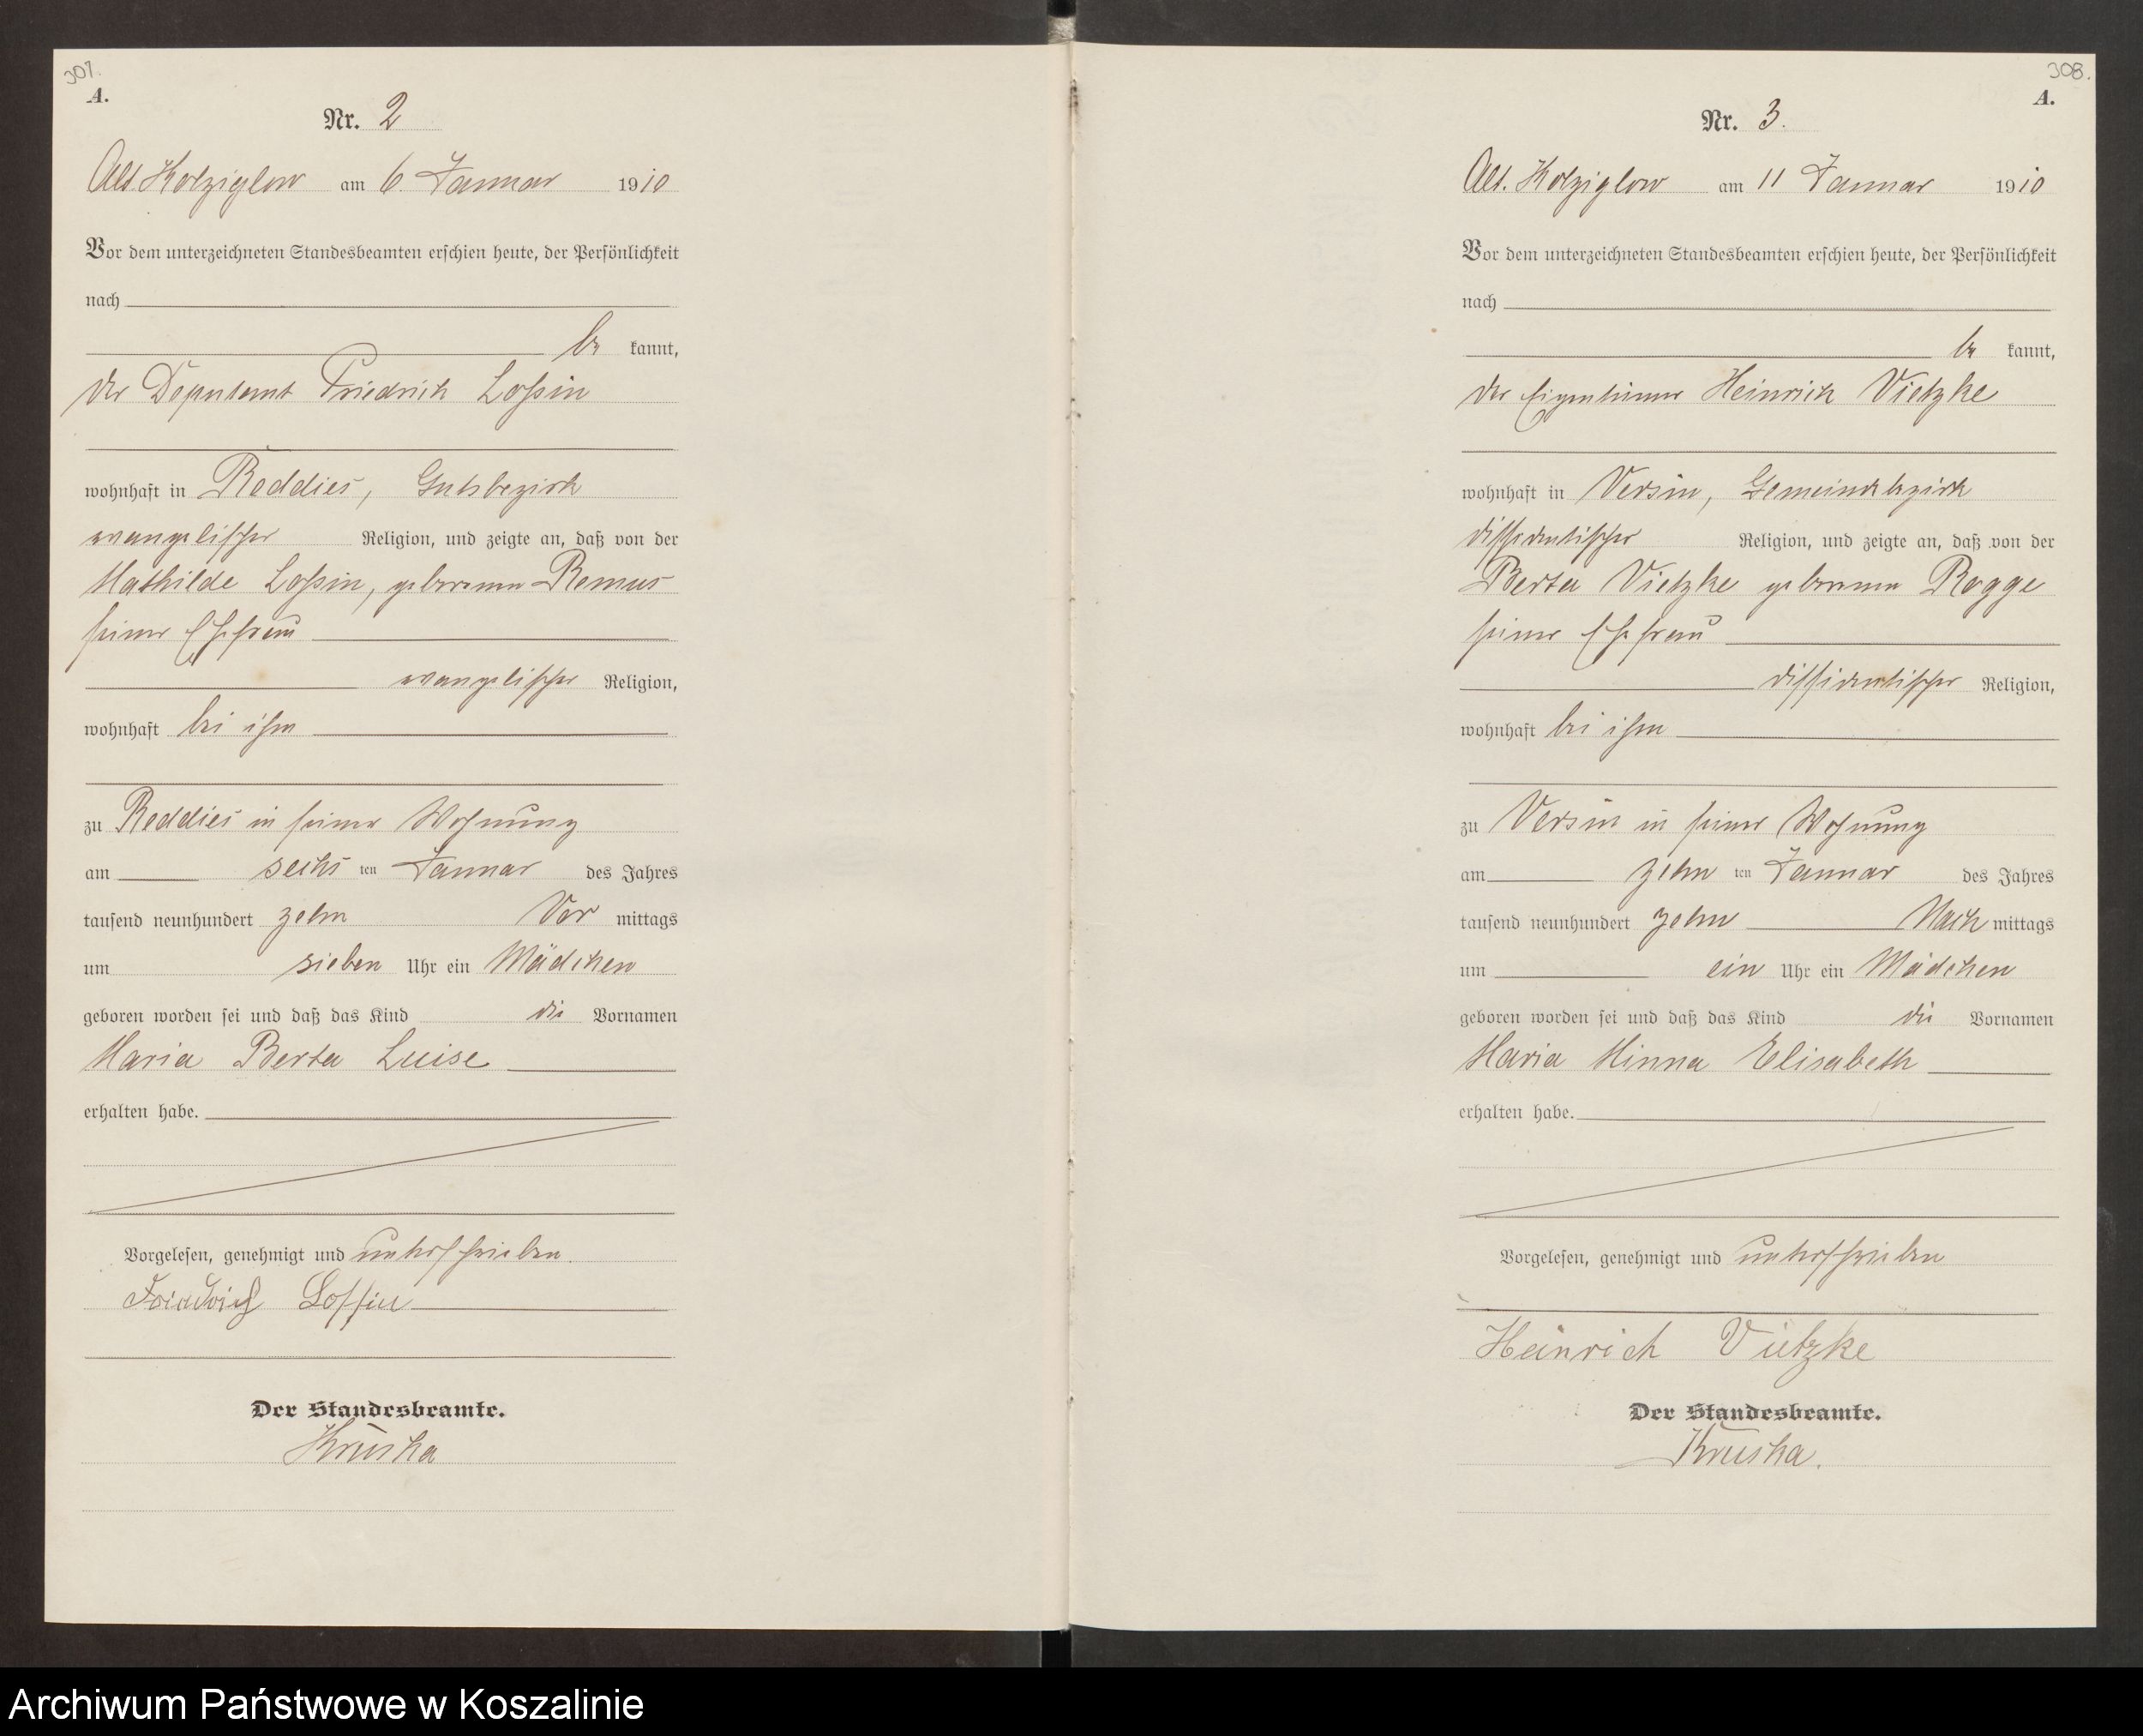 307.
A.
Nr. 2
Alt. Kolziglow am 6. Januar 1910
Vor dem unterzeichneten Standesbeamten erschien heute, der Persönlichkeit
nach
be kannt,
der Deputant Friedrich Lossin
wohnhaft in Reddies, Gutsbezirk
evangelischer Religion, und zeigte an, daß von der
Mathilde Lossin, geborenen Remus
seiner Ehefrau
evangelischer Religion,
wohnhaft bei ihm
zu Reddies in seiner Wohnung
am sechs ten Januar des Jahres
tausend neunhundert zehn Vor mittags
um sieben Uhr ein Mädchen
geboren worden sei und daß das Kind die Vornamen
Maria Berta Luise
erhalten habe.
Vorgelesen, genehmigt und unterschrieben
Friedrich Lossin
Der Standesbeamte.
Kruska
308.
A.
Nr. 3.
Alt. Kolziglow am 11 Januar 1910
Vor dem unterzeichneten Standesbeamten erschien heute, der Persönlichkeit
nach
be kannt,
der Eigentümer Heinrich Vietzke
wohnhaft in Versin, Gemeindebezirk
dissidentischer Religion, und zeigte an, daß von der
Berta Vietzke geborenen Rogge
seiner Ehefrau
dissidentischer Religion,
wohnhaft bei ihm
zu Versin in seiner Wohnung
am zehn ten Januar des Jahres
tausend neunhundert zehn Nach mittags
um ein Uhr ein Mädchen
geboren worden sei und daß das Kind die Vornamen
Maria Minna Elisabeth
erhalten habe.
Vorgelesen, genehmigt und unterschrieben
Heinrich Vietzke
Der Standesbeamte.
Kruska.
Archiwum Państwowe w Koszalinie